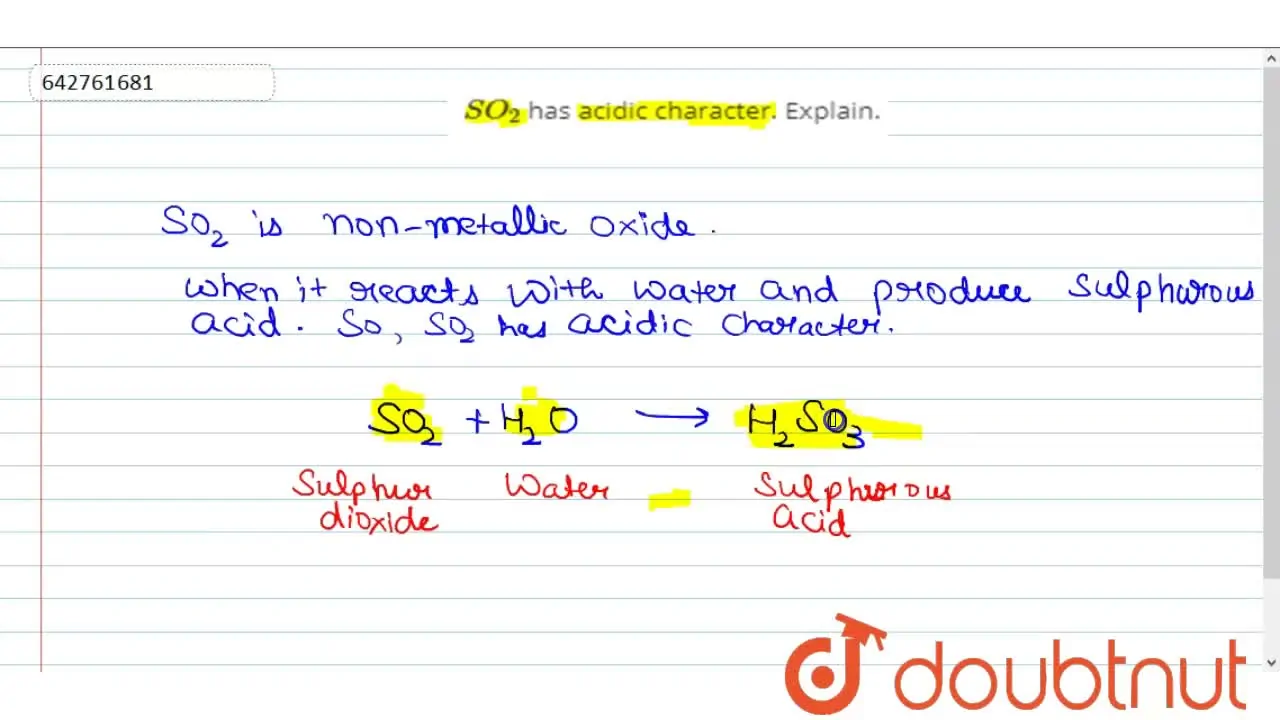 642761681
SO₂ has acidic character. Explain.
SO₂ is non-metallic oxide.
When it reacts with water and produce sulphurous
acid. So, SO₂ has acidic character.
SO₂ + H₂O → H₂SO₃
Sulphur Water Sulphurous
dioxide acid
doubtnut